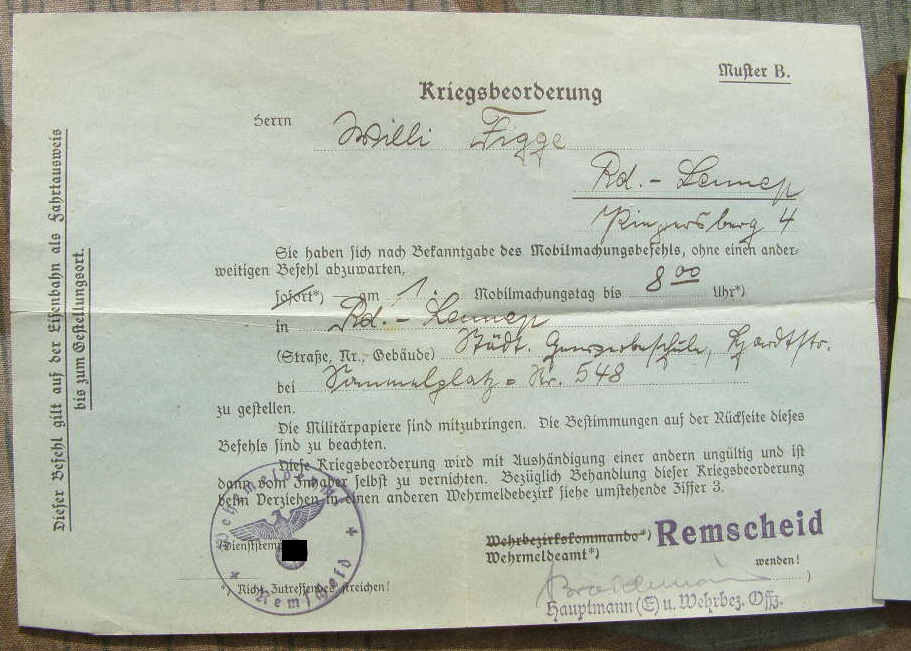 Muster B.
Kriegsbeorderung
Herrn Willi Figge
Rd. - Lennep
Ringersberg 4
Sie haben sich nach Bekanntgabe des Mobilmachungsbefehls, ohne einen ander-
weitigen Befehl abzuwarten,
sofort*) — am 1. Mobilmachungstag bis 8 00 Uhr*)
in Rd. - Lennep
(Straße, Nr., Gebäude) Städt. Gewerbeschule, Hardtstr.
bei Sammelplatz = Nr. 548
zu gestellen.
Die Militärpapiere sind mitzubringen. Die Bestimmungen auf der Rückseite dieses
Befehls sind zu beachten.
Diese Kriegsbeorderung wird mit Aushändigung einer andern ungültig und ist
dann vom Inhaber selbst zu vernichten. Bezüglich Behandlung dieser Kriegsbeorderung
beim Verziehen in einen anderen Wehrmeldebezirk siehe umstehende Ziffer 3.
Wehrbezirkskommando*) Remscheid
Wehrmeldeamt*)
wenden!
(Dienststempel
*) Nicht Zutreffendes streichen!
Hauptmann (E) u. Wehrbez. Offz.
Remscheid
Dieser Befehl gilt auf der Eisenbahn als Fahrtausweis
bis zum Gestellungsort.